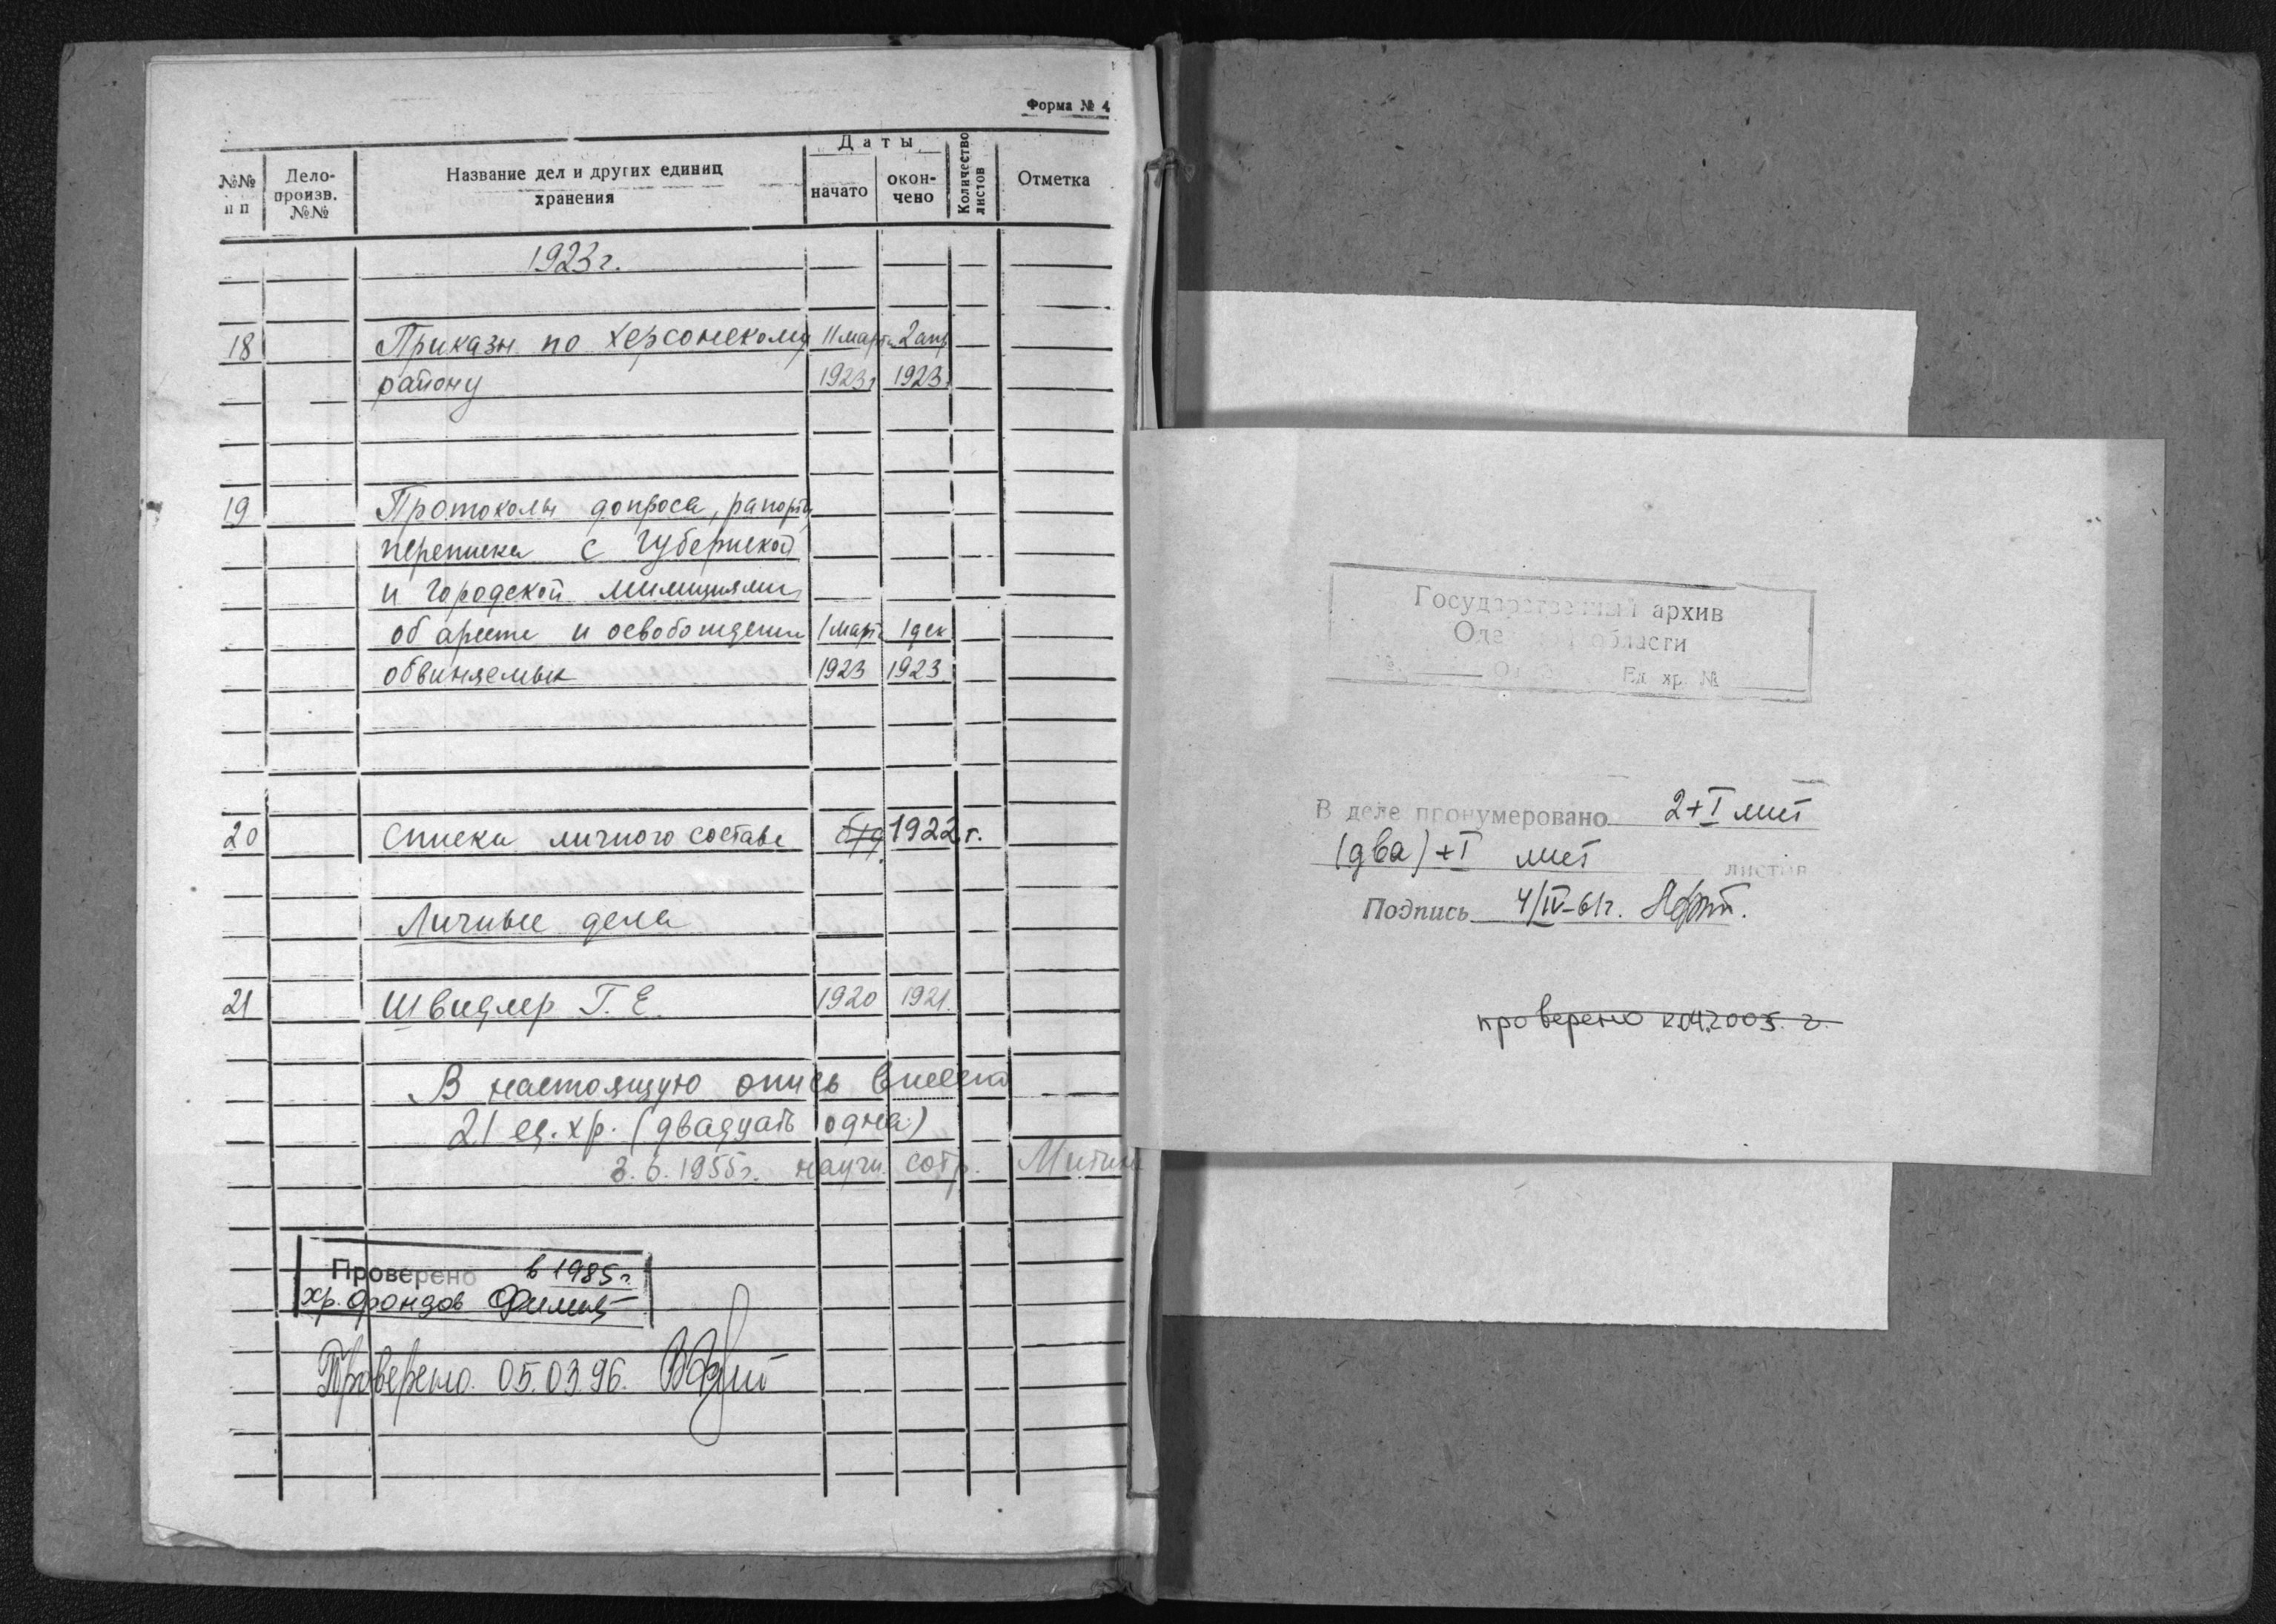 Форма № 4
№№ п п
Дело-произв. №№
Название дел и других единиц хранения
Даты
начато
окон-чено
Количество листов
Отметка
1923 г.
18 Приказы по Херсонскому 11 марта 2 апр
району 1923 г 1923
19 Протоколы допроса, рапорты,
переписка с губернской
и городской милициями
об аресте и освобождении 1 марта 1 дек
обвиняемых 1923 1923
20 Списки личного состава б/д 1922 г.
Личные дела
21 Швидлер Г. Е. 1920 1921.
В настоящую опись внесено
21 ед. хр. (двадцать одна)
3.6.1955 г. научн. сотр.
Проверено в 1985 г.
хр. фондов
Проверено 05.03.96.
Государственный архив
Оде области
№ Ед хр №
В деле пронумеровано 2+I лист
(два)+I лист листов
Подпись 4/IV-61 г.
проверено 2005. г.